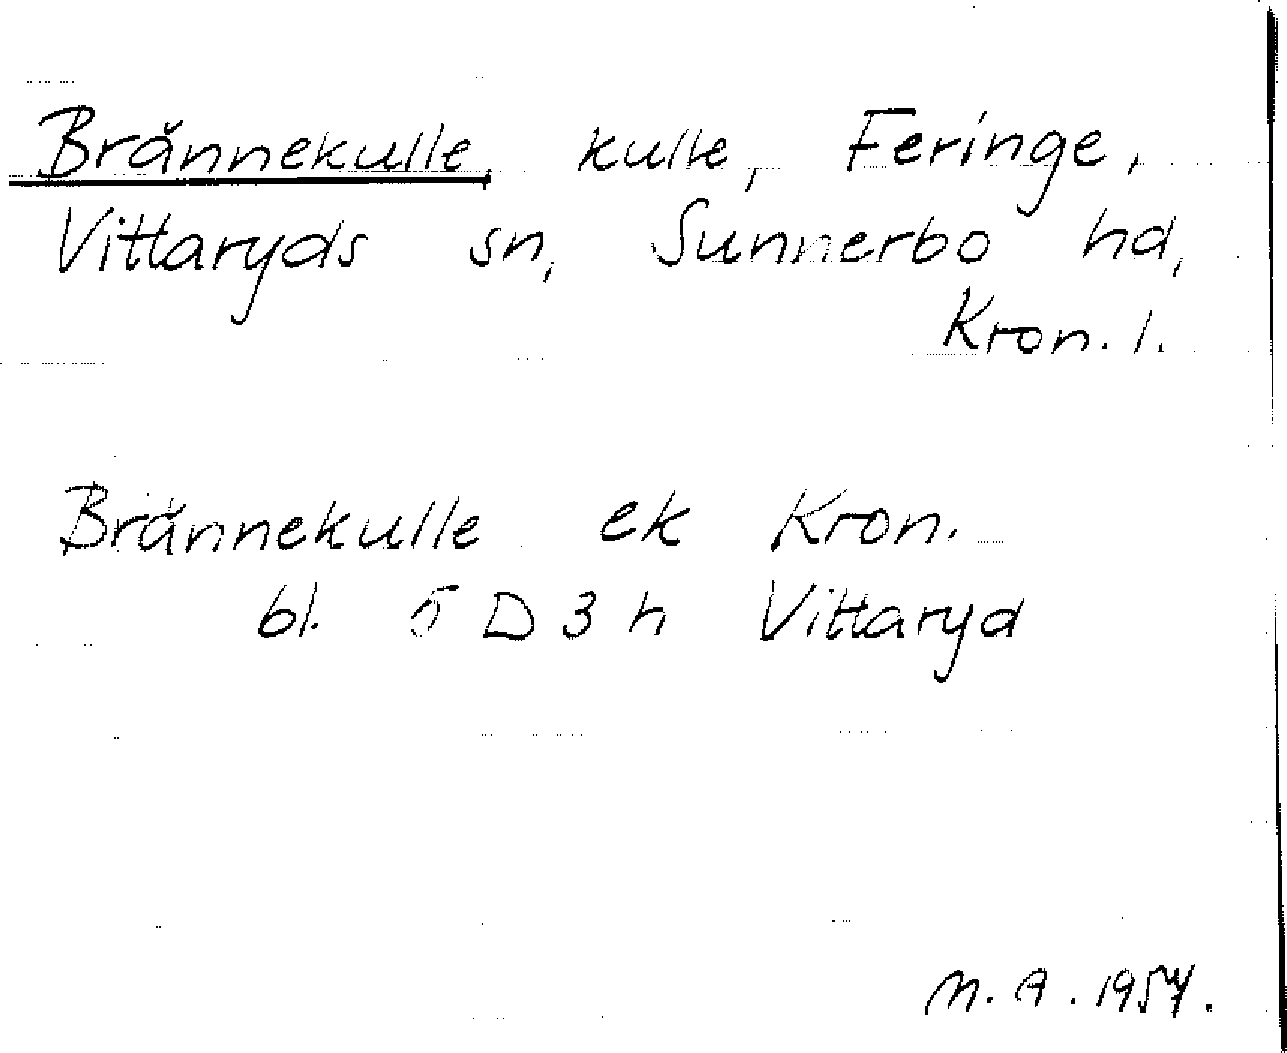 Brännekulle, kulle, Feringe,
Vittaryds sn, Sunnerbo hd,
Kron. l.
Brännekulle ek Kron.
bl. 5 D 3 h Vittaryd
M. A. 1954.